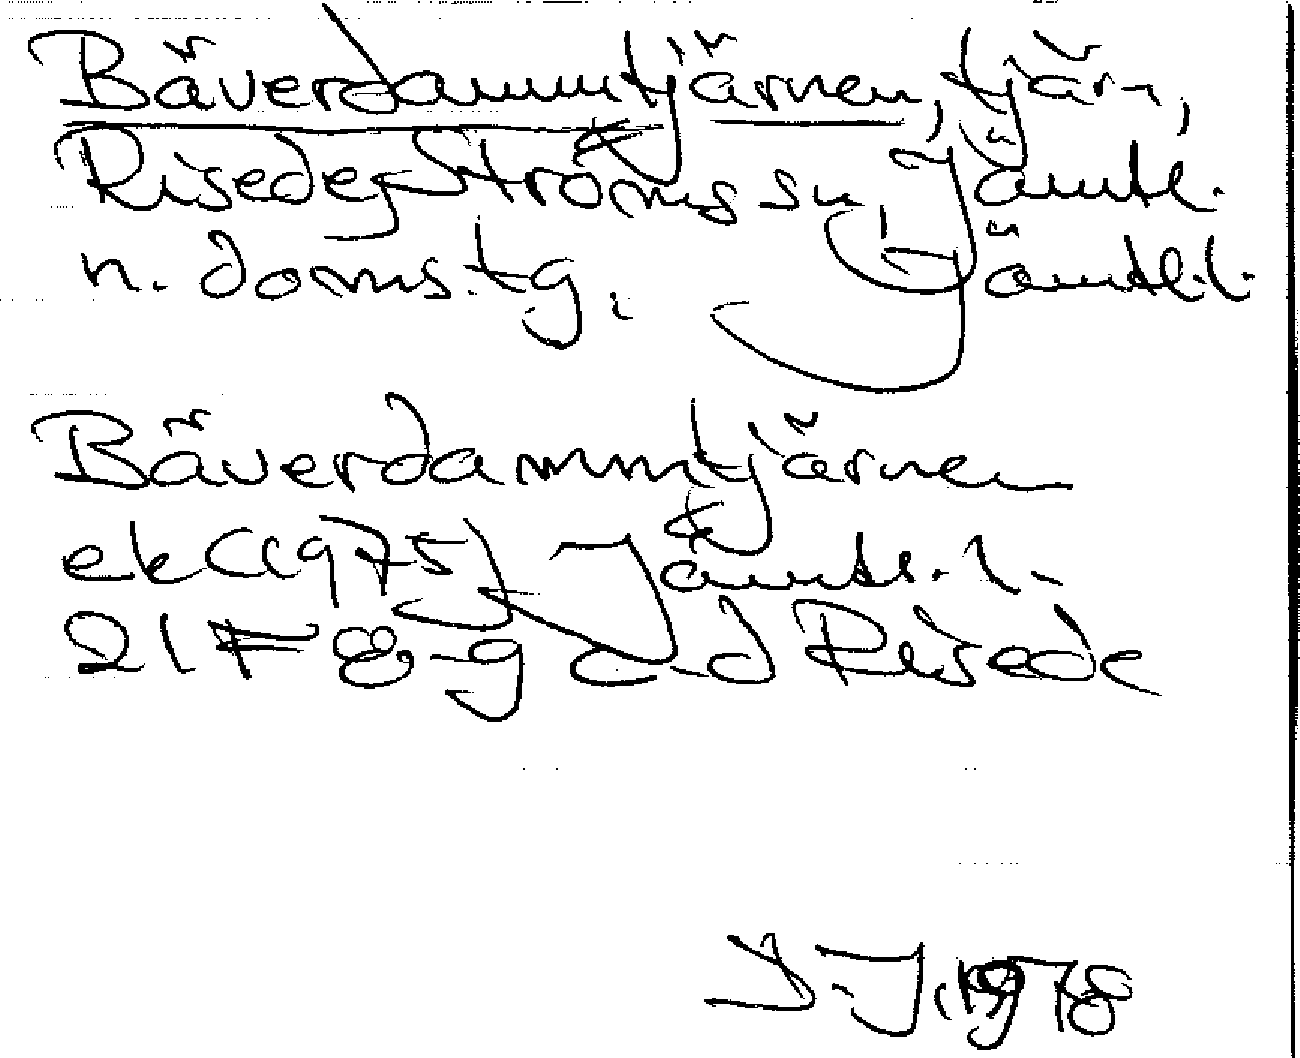 Bäverdammtjärnen, tjärn,
Risede, Ströms sn, Jämtl.
n. doms.tg., Jämtl.l.
Bäverdammtjärnen
ek (1975) Jämtl.l.
21F 8-9 c-d Risede
1978